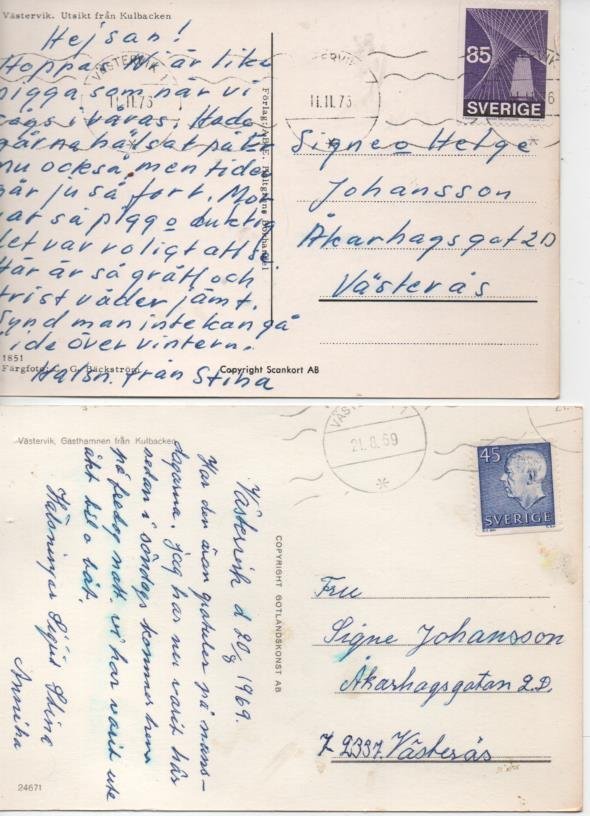 Västervik. Utsikt från Kulbacken
Hejsan!
Hoppas Ni är lika
pigga som när vi
sågs i våras. Hade
gärna hälsat på Er
nu också, men tiden
går ju så fort. Mor
var så pigg o duktig
det var roligt att se
Här är så grått och
trist väder jämt.
Synd man inte kan gå
i ide över vintern.
Halsn. från Stina
1851
Färgfoto: C. G. Bäckström
Copyright Scankort AB
VÄSTERVIK 1
11.11.76
11.11.76
85
SVERIGE
Signe o Helge
Johansson
Åkarhagsgat 2D
Västerås
Västervik, Gästhamnen från Kulbacken
Västervik d 20/8 1969.
Har den äran gratulera på namns-
dagarna. Jag har nu varit här
sedan i söndags kommer hem
på fredag natt. vi har varit ute
åkt bil o båt.
Hälsningar Sigrid Stina
Annika
24671
COPYRIGHT GOTLANDSKONST AB
VÄSTERVIK 1
21.8.69
45
SVERIGE
Fru
Signe Johansson
Åkarhagsgatan 2.D.
72337. Västerås